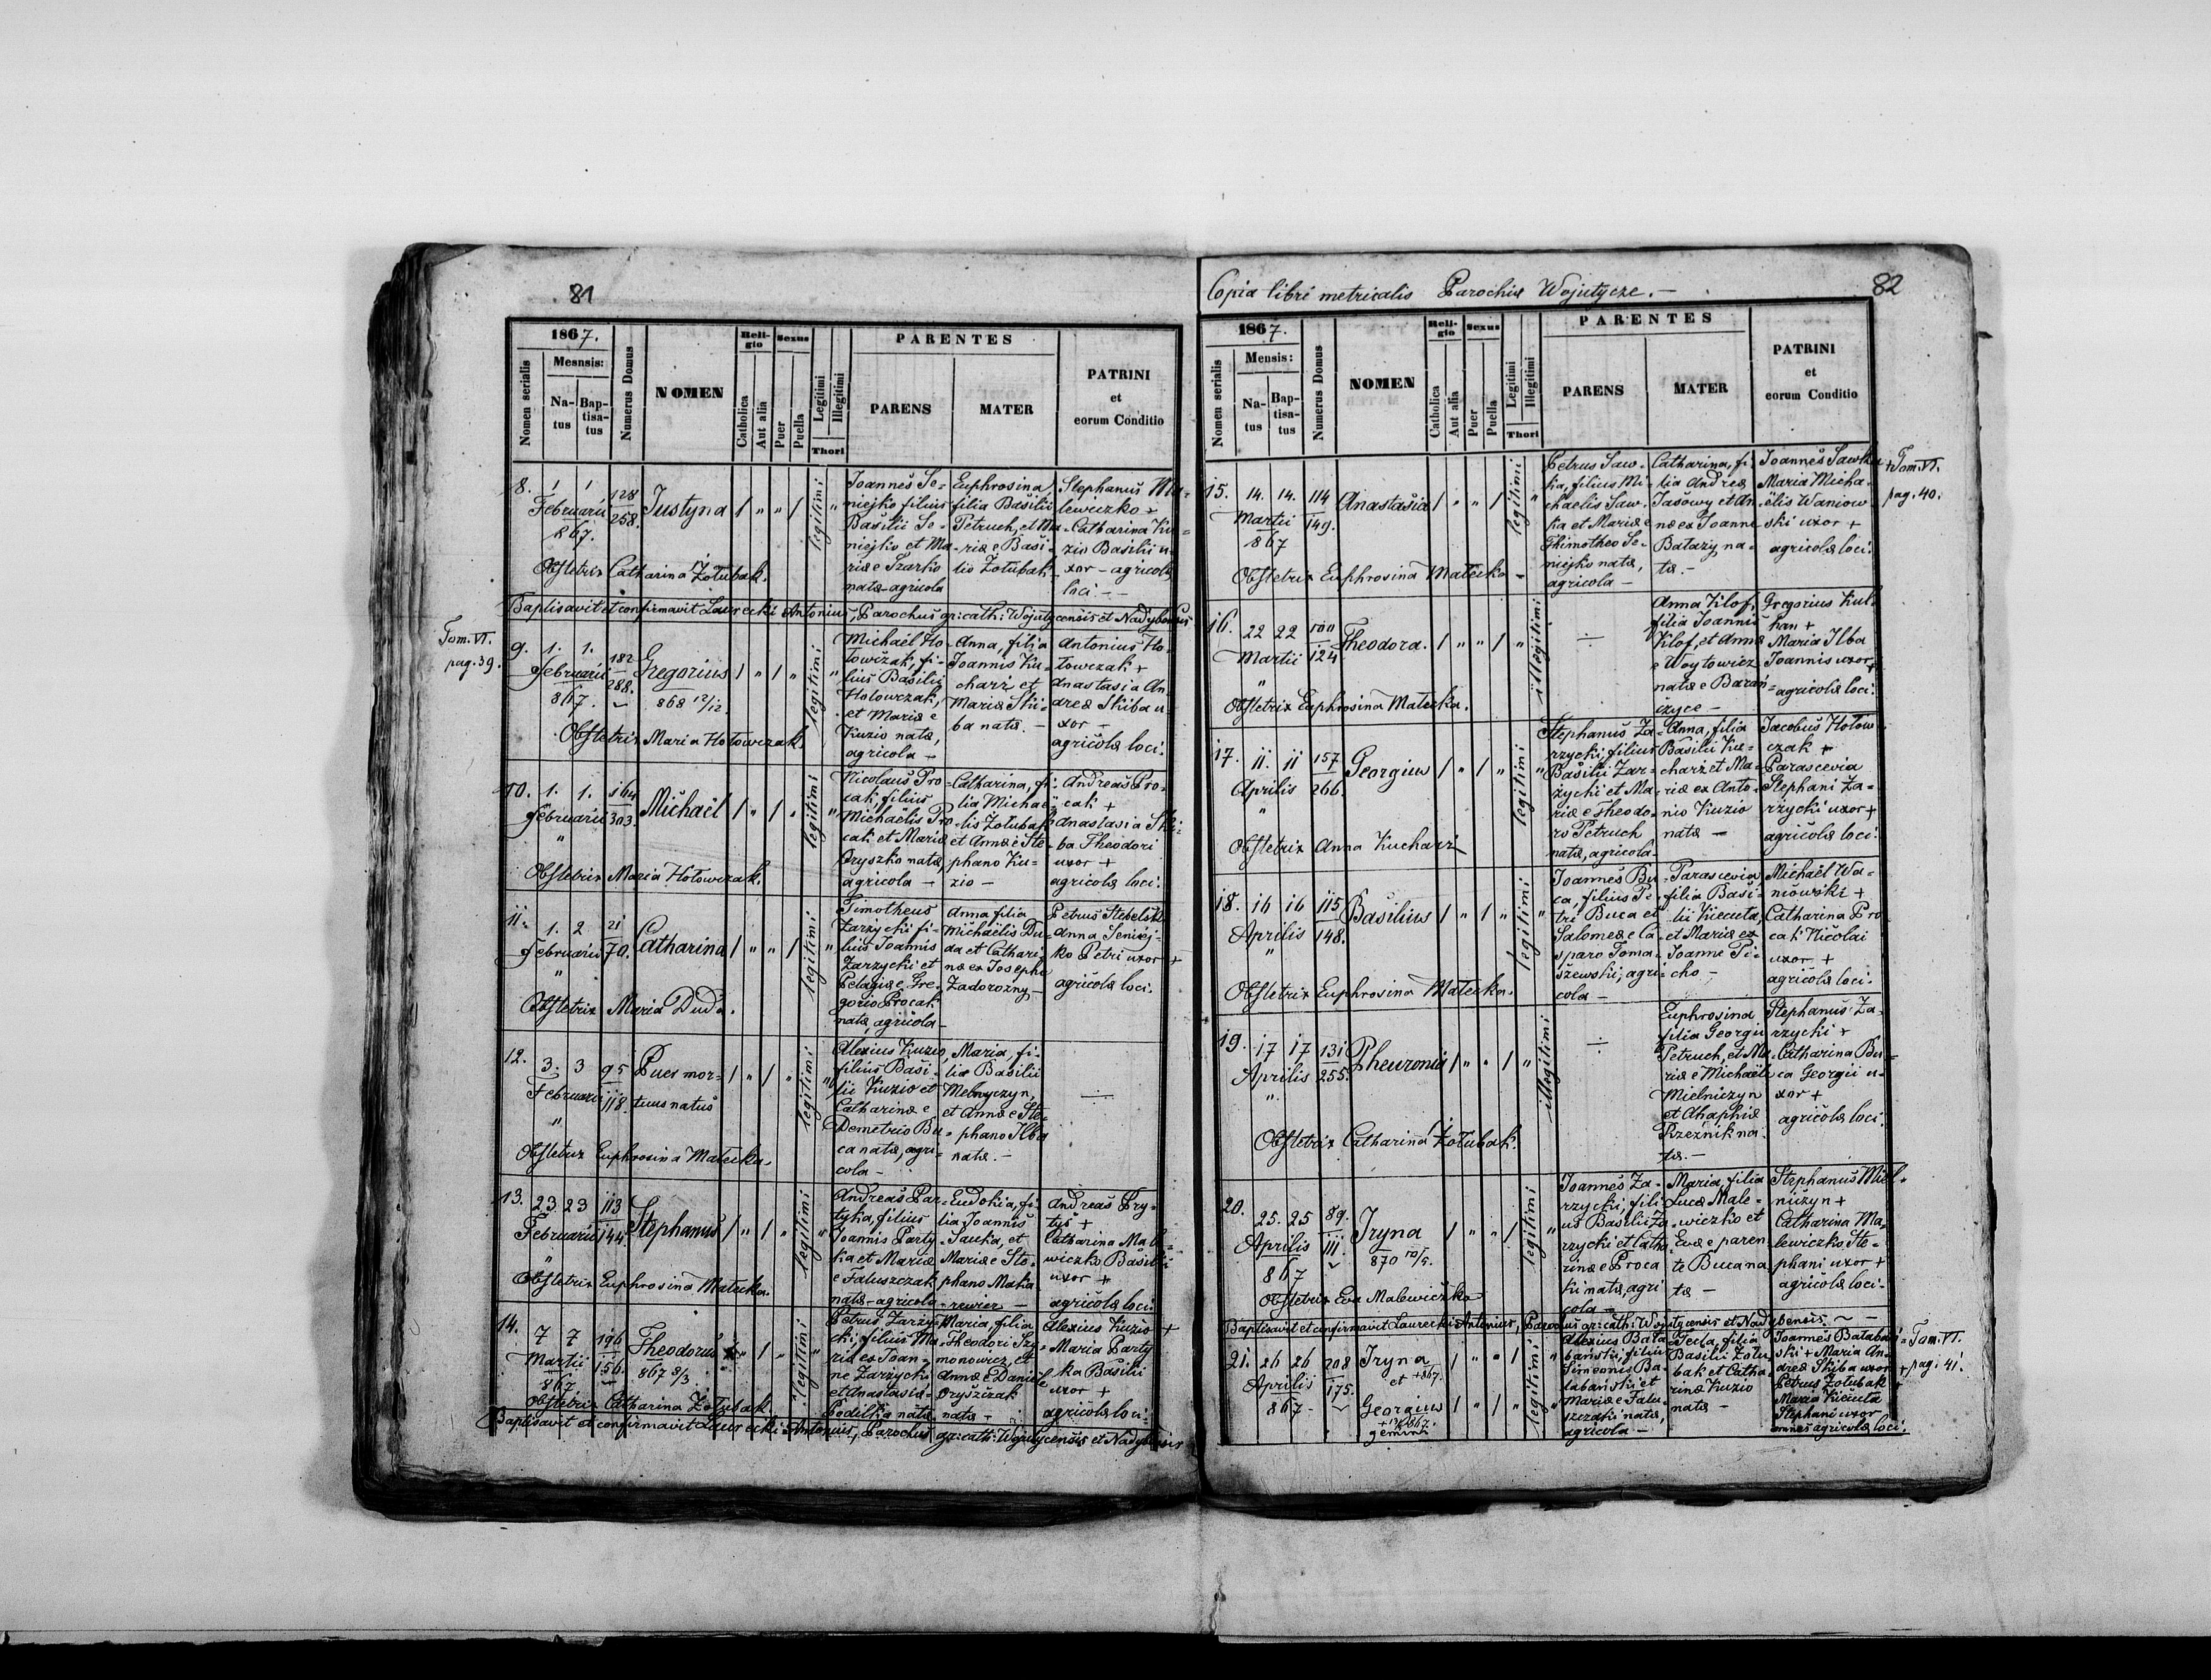 81
1867.
Nomen serialis
Mesnsis:
Na-
tus
Bap-
tisa-
tus
Numerus Domus
NOMEN
Reli-
gio
Catholica
Aut alia
Sexus
Puer
Puella
Legitimi
Illegitimi
Thori
PARENTES
PARENS
MATER
PATRINI
et
eorum Conditio
8.
1 1
Februarii
867.
128
258.
Justyna
legitimi
Joannes Se=
niejko filius
Basilii Se=
niejko et Ma-
riæ e Szarko
natæ-agricola
Euphrosina
filia Basilii
Petruch, et Ma-
riæ e Basi-
lio Żołubak
Stephanus Ma=
lewczko +
Catharina Ku=
zio Basilii u-
xor - agricolæ
loci. -
Obstetrix Catharina Żołubak.
Baptisavit et confirmavit Laurecki Antonius, Parochus gr: cath: Wojutycensis et Nadybensis
Tom. VI.
pag. 39.
9.
1. 1.
Februarii
867.
182
288.
Gregorius
868 12/12.
legitimi
Michaël Ho-
łowczak, fi-
lius Basilii
Hołowczak,
et Mariæ e
Kuzio natæ,
agricola -
Anna, filia
Joannis Ku-
charz et
Mariæ Ski-
ba natæ. -
Antonius Ho-
łowczak +
Anastasia An-
dreæ Skiba u-
xor -
agricolæ loci.
Obstetrix Maria Hołowczak.
10.
1. 1.
Februarii
"
164
303.
Michaël
legitimi
Nicolaus Pro-
cak, filius
Michaëlis Pro-
cak et Mariæ
Oryszko natæ,
agricola -
Catharina, fi-
lia Michaë-
lis Żołubak
et Annæ e Ste-
phano Ku-
zio -
Andreas Pro-
cak +
Anastasia Ski-
ba Theodori
uxor +
agricolæ loci.
Obstetrix Maria Hołowczak.
11.
1. 2
Februarii
"
21
70.
Catharina
legitimi
Timotheus
Zarzycki fi-
lius Joannis
Zarzycki et
Pelagiæ e Gre-
gorio Procak
natæ, agricola -
Anna filia
Michaëlis Du-
da et Cathari-
næ ex Josepho
Zadorożny -
Petrus Stebelsk.
Anna Seniej-
ko Petri uxor +
agricolæ loci.
Obstetrix Maria Duda.
12.
3. 3
Februarii
"
95
118.
Puer mor-
tuus natus
legitimi
Alexius Kuzio,
filius Basi-
lii Kuzio et
Catharinæ e
Demetrio Bu-
ca natæ, agri-
cola -
Maria, fi-
lia Basilii
Melnyczyn,
et Annæ e Ste-
phano Ilba
natæ. -
Obstetrix Euphrosina Małecka.
13.
23. 23
Februarii
"
113
144.
Stephanus
legitimi
Andreas Par-
tyka, filius
Joannis Party-
ka et Mariæ
e Faluszczak
natæ-agricola
Eudokia, fi-
lia Joannis
Sauka, et
Mariæ e Ste-
phano Maka-
rewicz -
Andreas Pry-
tys +
Catharina Male-
wiczko Basilii
uxor +
agricolæ loci.
Obstetrix Euphrosina Małecka.
14.
7 7
Martii
867
196
156.
Theodorus
867 8/3
legitimi
Petrus Zarzy-
cki, filius Ma-
riæ ex Joan-
ne Zarzycki
et Anastasiæ
Podilka natæ
Maria, filia
Theodori Szy-
monowicz, et
Annæ e Daniele
Oryszczak
natæ -
Alexius Kuzio +
Maria Party
ka Basilii
uxor +
agricolæ loci
Obstetrix Catharina Żołubak
Baptisavit et confirmavit Laurecki Antonius, Parochus gr: cath: Wojutycensis et Nadybensis
Copia libri metricalis Parochiæ Wojutycze. -
82
1867.
Nomen serialis
Mensis:
Na-
tus
Bap-
tisa-
tus
Numerus Domus
NOMEN
Reli-
gio
Catholica
Aut alia
Sexus
Puer
Puella
Legitimi
Illegitimi
Thori
PARENTES
PARENS
MATER
PATRINI
et
eorum Conditio
15.
14. 14.
Martii
867
114
149.
Anastasia
legitimi
Petrus Saw-
ka, filius Mi-
chaelis Saw-
ka et Mariæ e
Thimotheo Se-
niejko natæ,
agricola -
Catharina, fi-
lia Andreæ
Jasowy et An-
næ ex Joanne
Batazy na-
tæ. -
Joannes Sawka +
Maria Micha-
ëlis Waniow
ski uxor +
agricolæ loci.
Tom. VI.
pag. 40.
Obstetrix Euphrosina Małecka -
16.
22 22
Martii
"
100
124
Theodora.
illegitimi
Anna Klof,
filia Joannis
Klof, et Annæ
e Woytowicz
natæ e Barań-
czyce -
Gregorius Kul-
han +
Maria Ilba
Joannis uxor +
agricolæ loci.
Obstetrix Euphrosina Małecka.
17.
11. 11
Aprilis
"
157
266.
Georgius
legitimi
Stephanus Za-
rzycki, filius
Basilii Zar-
zycki et Ma-
riæ e Theodo-
ro Petruch
natæ, agricola -
Anna, filia
Basilii Ku-
charz et Ma-
riæ ex Anto-
nio Kuzio
natæ -
Jacobus Hołow-
czak +
Parascevia
Stephani Za-
rzycki uxor +
agricolæ loci.
Obstetrix Anna Kucharz
18.
16 16
Aprilis
"
115
148.
Basilius
legitimi
Joannes Bu-
ca, filius Pe-
tri Buca et
Salomeæ e Ca-
sparo Toma-
szewski, agri-
cola -
Parascevia
filia Basi-
lii Kiecuta,
et Mariæ ex
Joanne Pi-
cho -
Michaël Wa-
niowski +
Catharina Pro
cak Nicolai
uxor +
agricolæ loci.
Obstetrix Euphrosina Małecka.
19.
17 17
Aprilis
"
131
255.
Pheuronia
illegitimi
Euphrosina
filia Georgii
Petruch, et Ma-
riæ e Michaële
Mielniczyn
et Ahaphiæ
Rzeźnik na-
tæ. -
Stephanus Za-
rzycki +
Catharina Bu-
ca Georgii u-
xor +
agricolæ loci.
Obstetrix Catharina Żołubak.
20.
25. 25
Aprilis
867
89.
111.
Iryna
870 10/5.
legitimi
Joannes Za-
rzycki, fili-
us Basilii Za-
rzycki et Catha-
rinæ e Proca
ki natæ, agri
cola -
Maria, filia
Lucæ Male-
wiczko et
Evæ e paren-
te Buca na-
tæ -
Stephanus Miel-
niczyn +
Catharina Ma-
lewiczko Ste-
phani uxor +
agricolæ loci -
Obstetrix Eva Malewiczko
Baptisavit et confirmavit Laurecki Antonius, Parochus gr: cath: Wojutycensis et Nadybensis. -
21.
26 26
Aprilis
867-
208
175.
Iryna
et +867.
Georgius
gemini
legitimi
Alexius Bała-
bański, filius
Simeonis Ba-
łabański et
Mariæ e Falu-
szczaki natæ,
agricola -
Tecla, filia
Basilii Żołu-
bak et Catha-
rinæ Kuzio
natæ -
Joannes Bałabań-
ski + Maria An-
dreæ Skiba uxor +
Petrus Żołubak +
Maria Kiecuta
Stephani uxor
omnes agricolæ loci.
Tom. VI.
pag. 41.